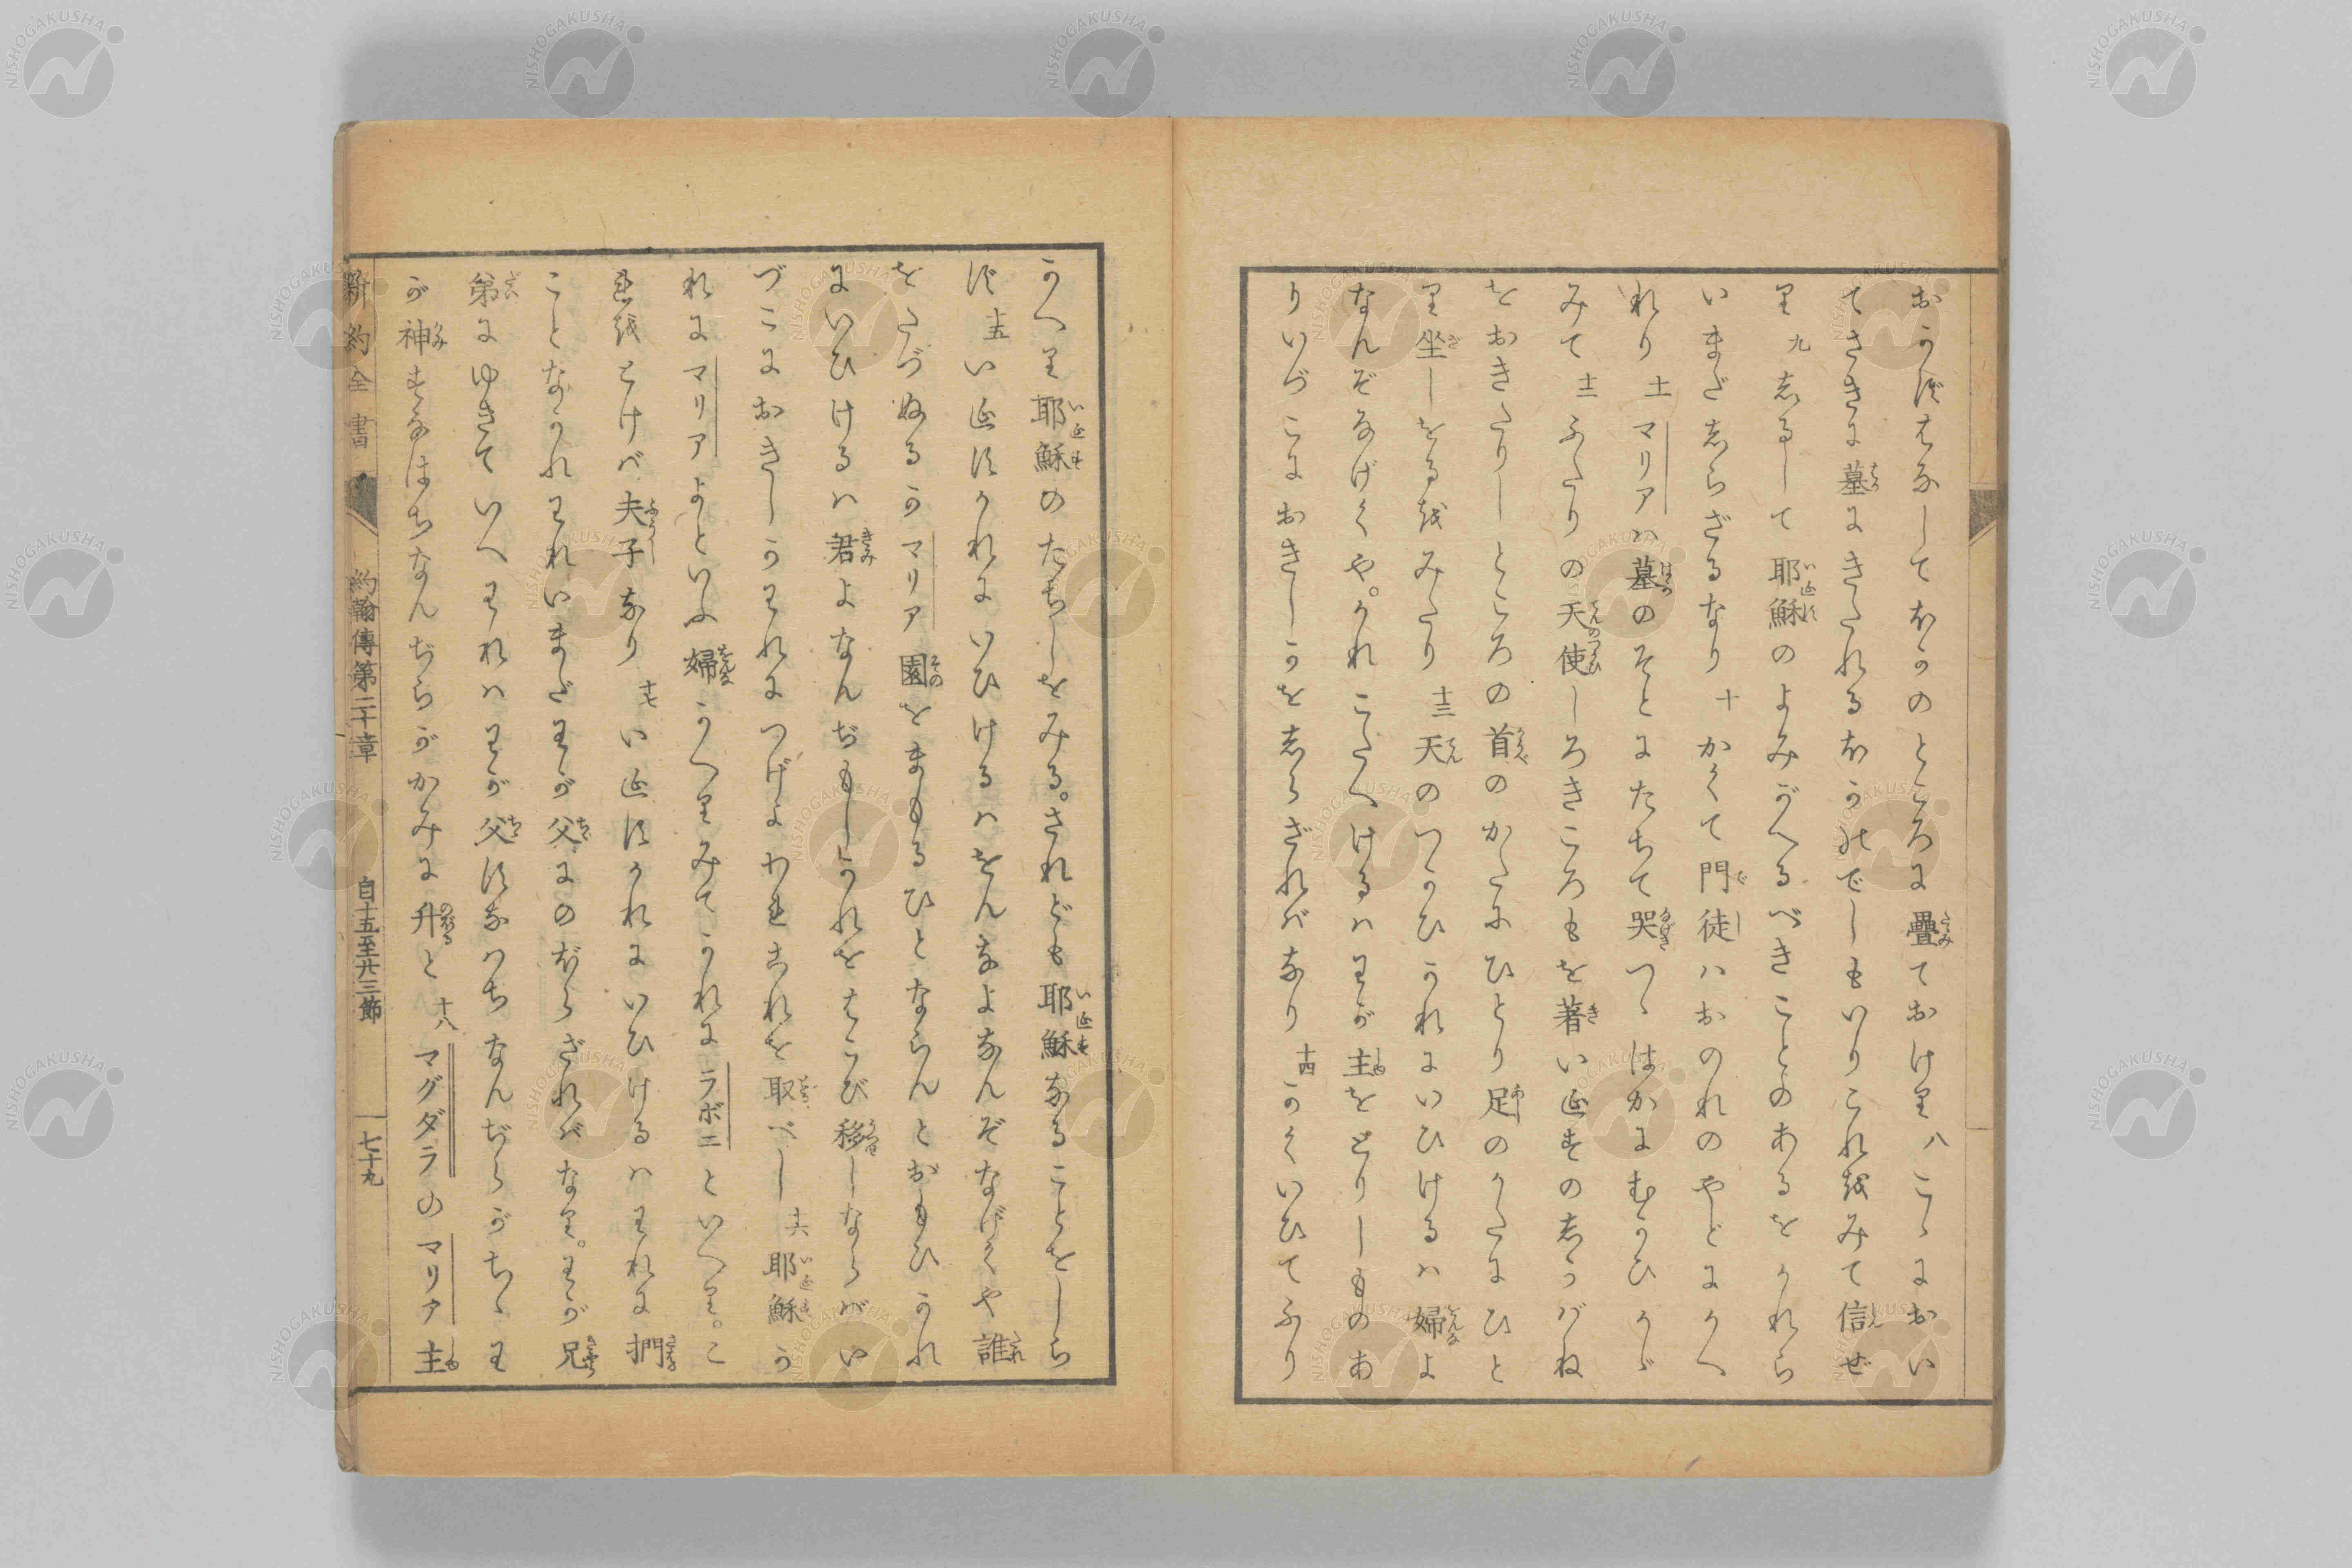 おかずはなしてほかのところに疊ておけり 八 こゝにおい
てさきに墓にきたれるほかのでしもいりこれをみて信ぜ
り 九 しるして耶穌のよみがへるべきことのあるをかれら
いまだしらざるなり 十 かくて門徒ハおのれのやどにかへ
れり 十一 マリアハ墓のそとにたちて哭つゝはかにむかひかゞ
みて 十二 ふたりの天使しろきころもを著いゑすのしかばね
をおきたりしところの首のかたにひとり足のかたにひと
り坐しをるをみたり 十三 天のつかひかれにいひけるハ婦よ
なんぞなげくや。かれこたへけるハわが主をとりしものあ
りいづこにおきしかをしらざれバなり 十四 かくいひてふり
かへり耶穌のたちしをみる。されども耶穌なることをしら
ず 十五 いゑすかれにいひけるハをんなよなんぞなげくや誰
をたづぬるかマリア園をまもるひとならんとおもひかれ
にいひけるハ君よなんぢもしかれをはこび移しならばい
づこにおきしかわれにつげよわれこれを取べし 十六 耶穌か
れにマリアよといふ婦かへりみてかれにラボニといへり。こ
れをとけバ夫子なり 十七 いゑすかれにいひけるハわれに捫
ことなかれわれいまだわが父にのぼらざれバなり。わが兄
弟にゆきていへわれハわが父すなハちなんぢらがちゝわ
が神すなはちなんぢらがかみに升と 十八 マグダラのマリア主
新約全書 約翰傳第二十章 自十五至廿三節 七十九